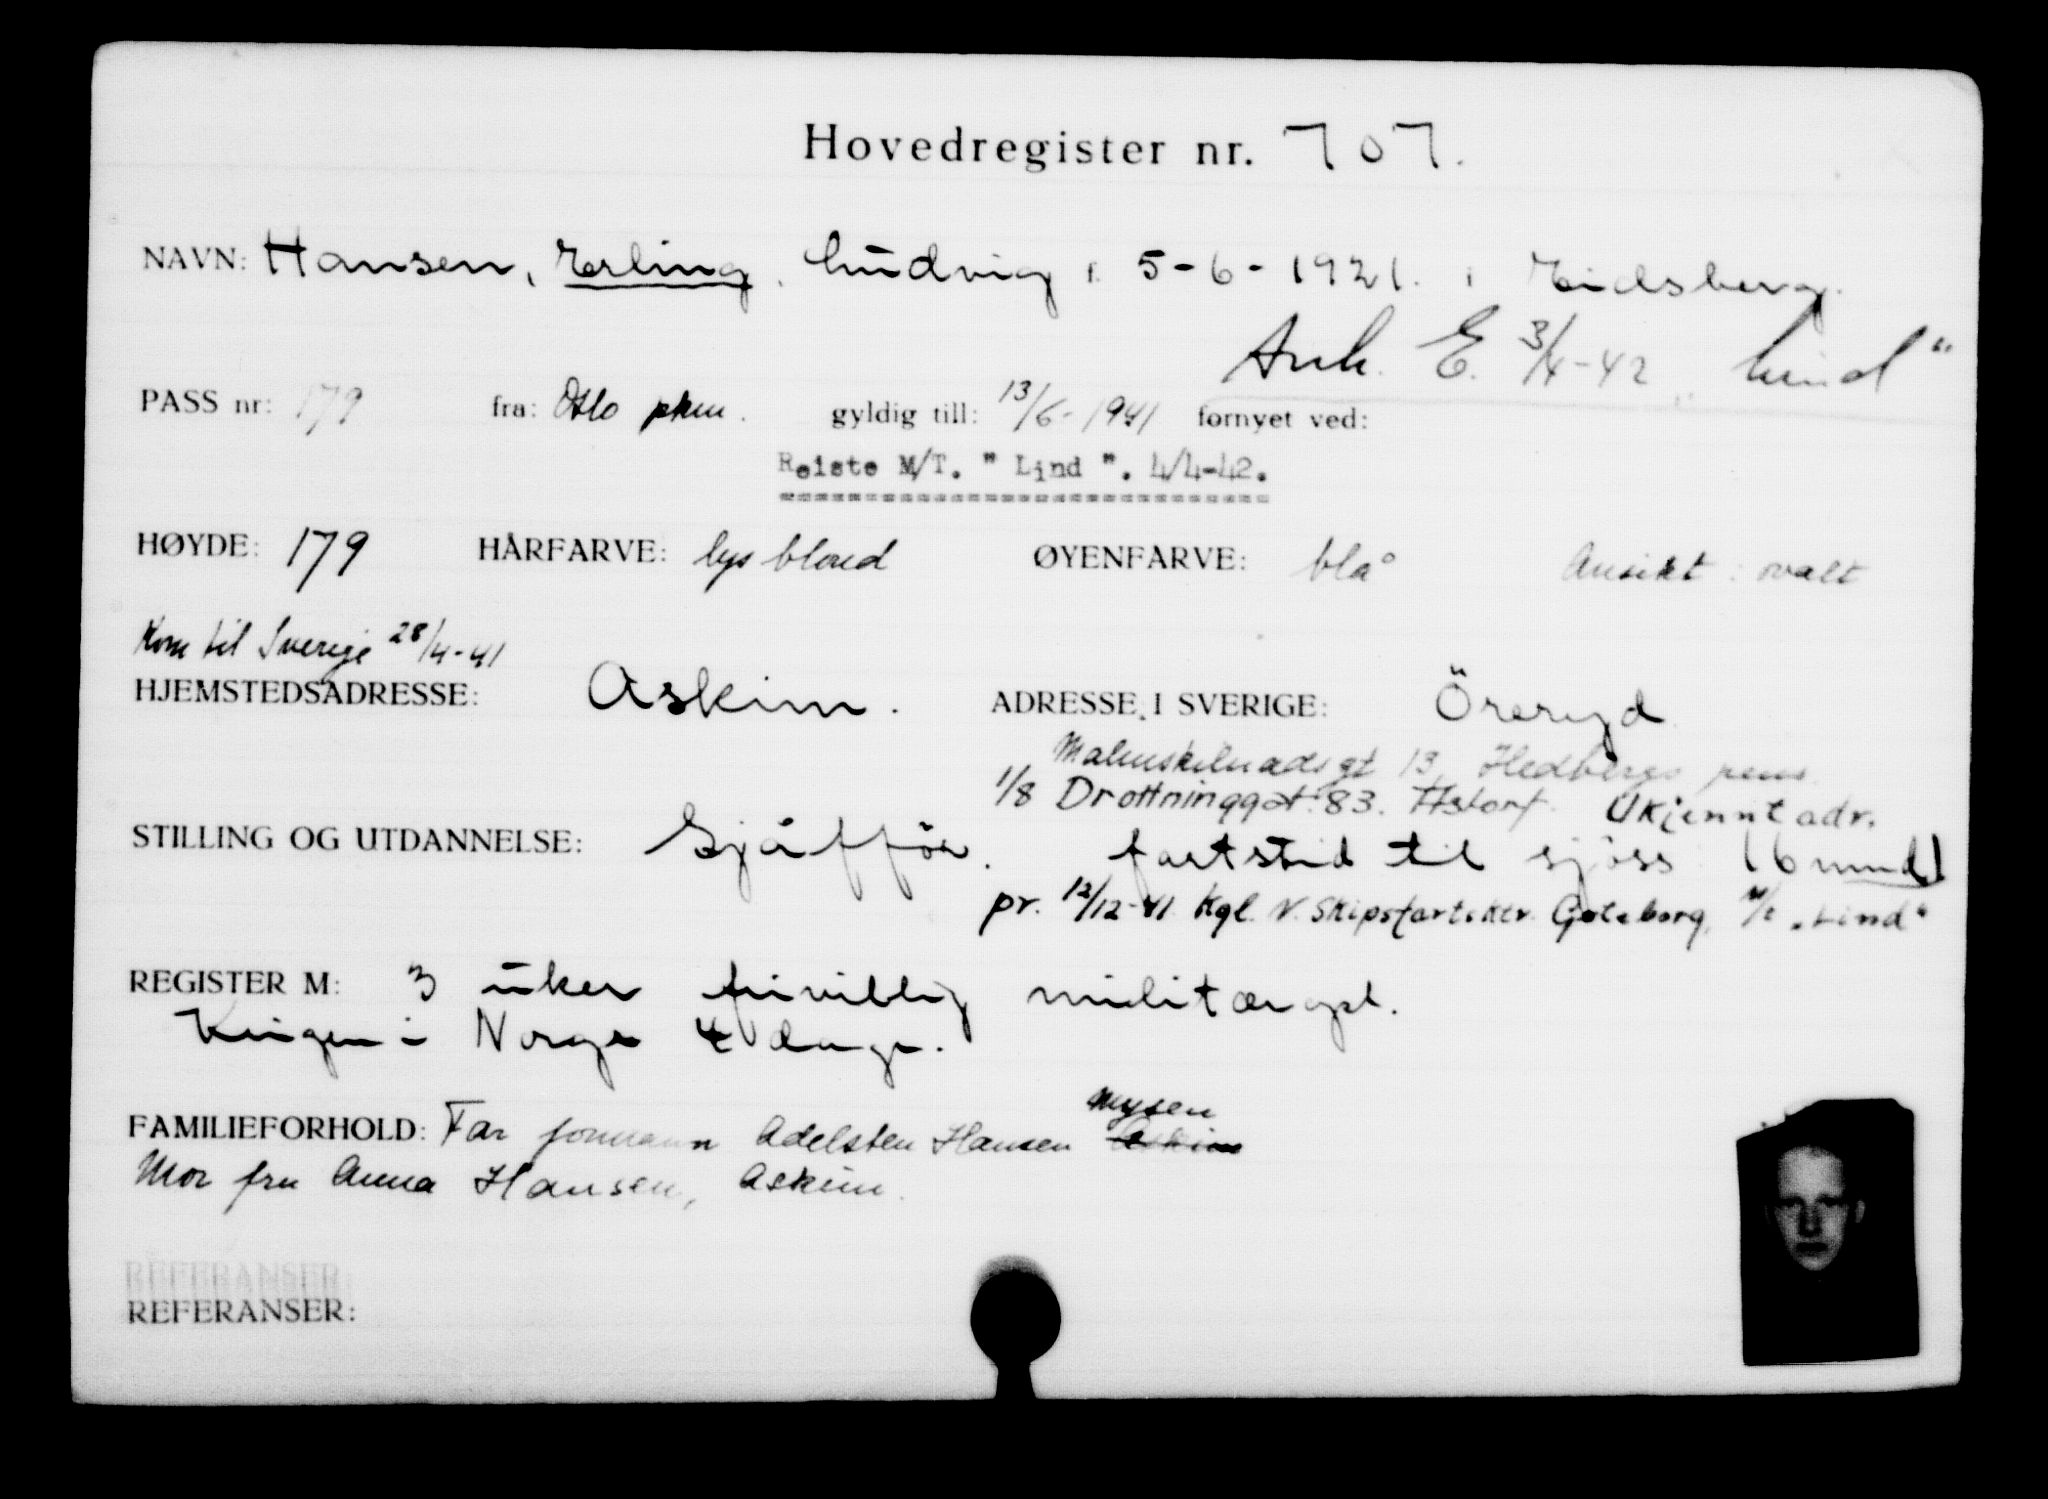 Hovedregister nr. 707.
NAVN: Hansen, Erling. Ludvig f. 5-6-1921. i Eidsberg.
Ank. E. 3/4-42 „Lind“
PASS nr: 179 fra: Oslo pkm. gyldig till: 13/6-1941 fornyet ved:
Reiste M/T. " Lind ". 4/4-42.
HØYDE: 179 HÅRFARVE: lys blond ØYENFARVE: blå Ansikt: ovalt
Kom til Sverige 28/4-41
HJEMSTEDSADRESSE: Askim. ADRESSE I SVERIGE: Öreryd
Malmskilnadsgt 13, Hedbergs pens.
1/8 Drottninggat. 83. Ukjennt adr.
STILLING OG UTDANNELSE: Sjåffør. fartstid til sjøss 16 mnd
pr. 12/12-41. Kgl. N. Skipsfartsktr. Gøteborg, M/T „Lind“
REGISTER M: 3 uker frivillig militæropl.
Krigen i Norge 4 dage.
FAMILIEFORHOLD: Far formann Adelsten Hansen Mysen Askim
Mor fru Anna Hansen, Askim.
REFERANSER
REFERANSER: